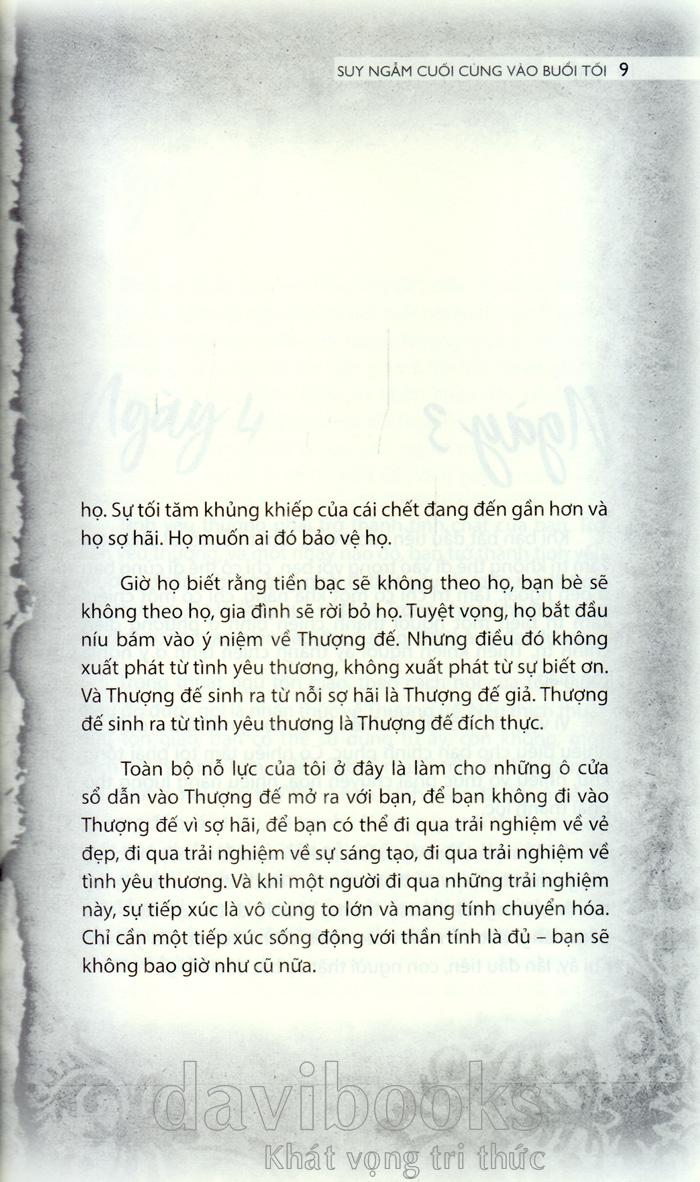 SUY NGẪM CUỐI CÙNG VÀO BUỔI TỐI 9
Ngày 4
Ngày 3
họ. Sự tối tăm khủng khiếp của cái chết đang đến gần hơn và
họ sợ hãi. Họ muốn ai đó bảo vệ họ.
Giờ họ biết rằng tiền bạc sẽ không theo họ, bạn bè sẽ
không theo họ, gia đình sẽ rời bỏ họ. Tuyệt vọng, họ bắt đầu
níu bám vào ý niệm về Thượng đế. Nhưng điều đó không
xuất phát từ tình yêu thương, không xuất phát từ sự biết ơn.
Và Thượng đế sinh ra từ nỗi sợ hãi là Thượng đế giả. Thượng
đế sinh ra từ tình yêu thương là Thượng đế đích thực.
Toàn bộ nỗ lực của tôi ở đây là làm cho những ô cửa
sổ dẫn vào Thượng đế mở ra với bạn, để bạn không đi vào
Thượng đế vì sợ hãi, để bạn có thể đi qua trải nghiệm về vẻ
đẹp, đi qua trải nghiệm về sự sáng tạo, đi qua trải nghiệm về
tình yêu thương. Và khi một người đi qua những trải nghiệm
này, sự tiếp xúc là vô cùng to lớn và mang tính chuyển hóa.
Chỉ cần một tiếp xúc sống động với thần tính là đủ – bạn sẽ
không bao giờ như cũ nữa.
davibooks
Khát vọng tri thức